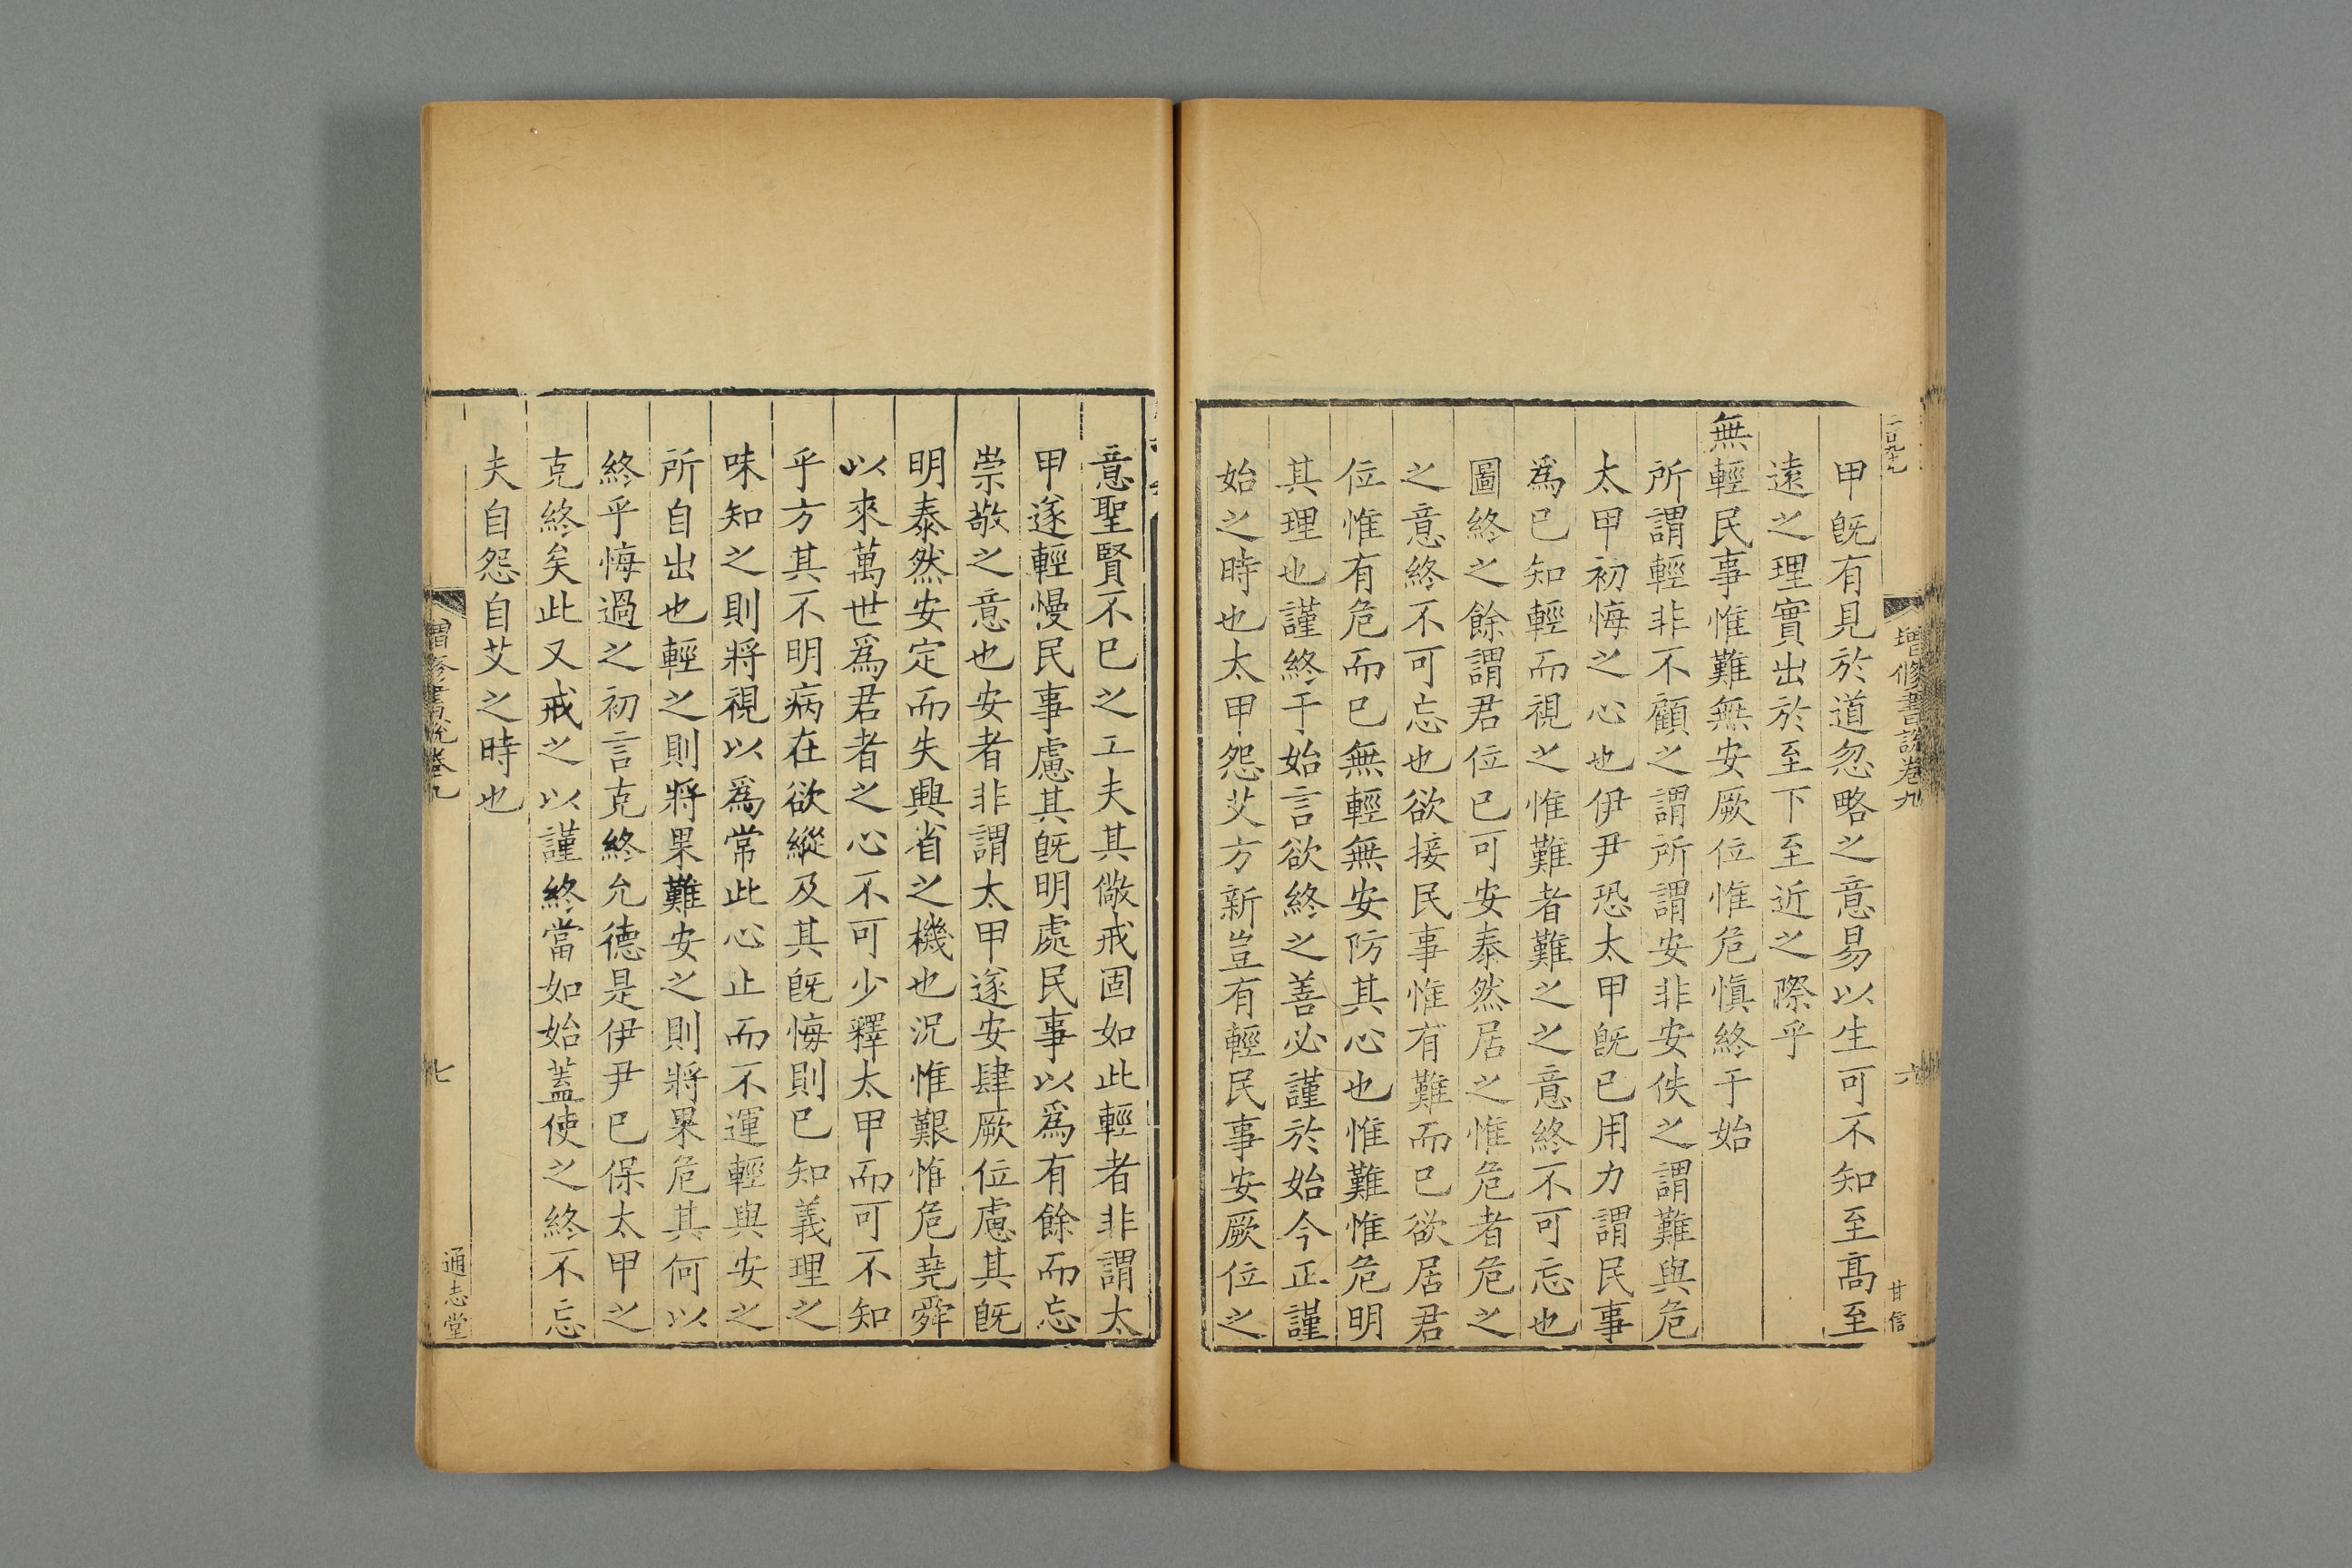 二百九十九
增修書説卷九
六
甘信
甲旣有見於道忽略之意易以生可不知至高至
遠之理實出於至下至近之際乎
無輕民事惟難無安厥位惟危愼終于始
所謂輕非不顧之謂所謂安非安佚之謂難與危
太甲初悔之心也伊尹恐太甲旣已用力謂民事
爲已知輕而視之惟難者難之之意終不可忘也
圖終之餘謂君位已可安泰然居之惟危者危之
之意終不可忘也欲接民事惟有難而已欲居君
位惟有危而已無輕無安防其心也惟難惟危明
其理也謹終于始言欲終之善必謹於始今正謹
始之時也太甲怨艾方新豈有輕民事安厥位之
意聖賢不已之工夫其儆戒固如此輕者非謂太
甲遂輕慢民事慮其旣明處民事以爲有餘而忘
崇敬之意也安者非謂太甲遂安肆厥位慮其旣
明泰然安定而失興省之機也況惟艱惟危堯舜
以來萬世爲君者之心不可少釋太甲而可不知
乎方其不明病在欲縱及其旣悔則已知義理之
味知之則將視以爲常此心止而不運輕與安之
所自出也輕之則將果難安之則將果危其何以
終乎悔過之初言克終允德是伊尹已保太甲之
克終矣此又戒之以謹終當如始蓋使之終不忘
夫自怨自艾之時也
增修書説卷九
七
通志堂